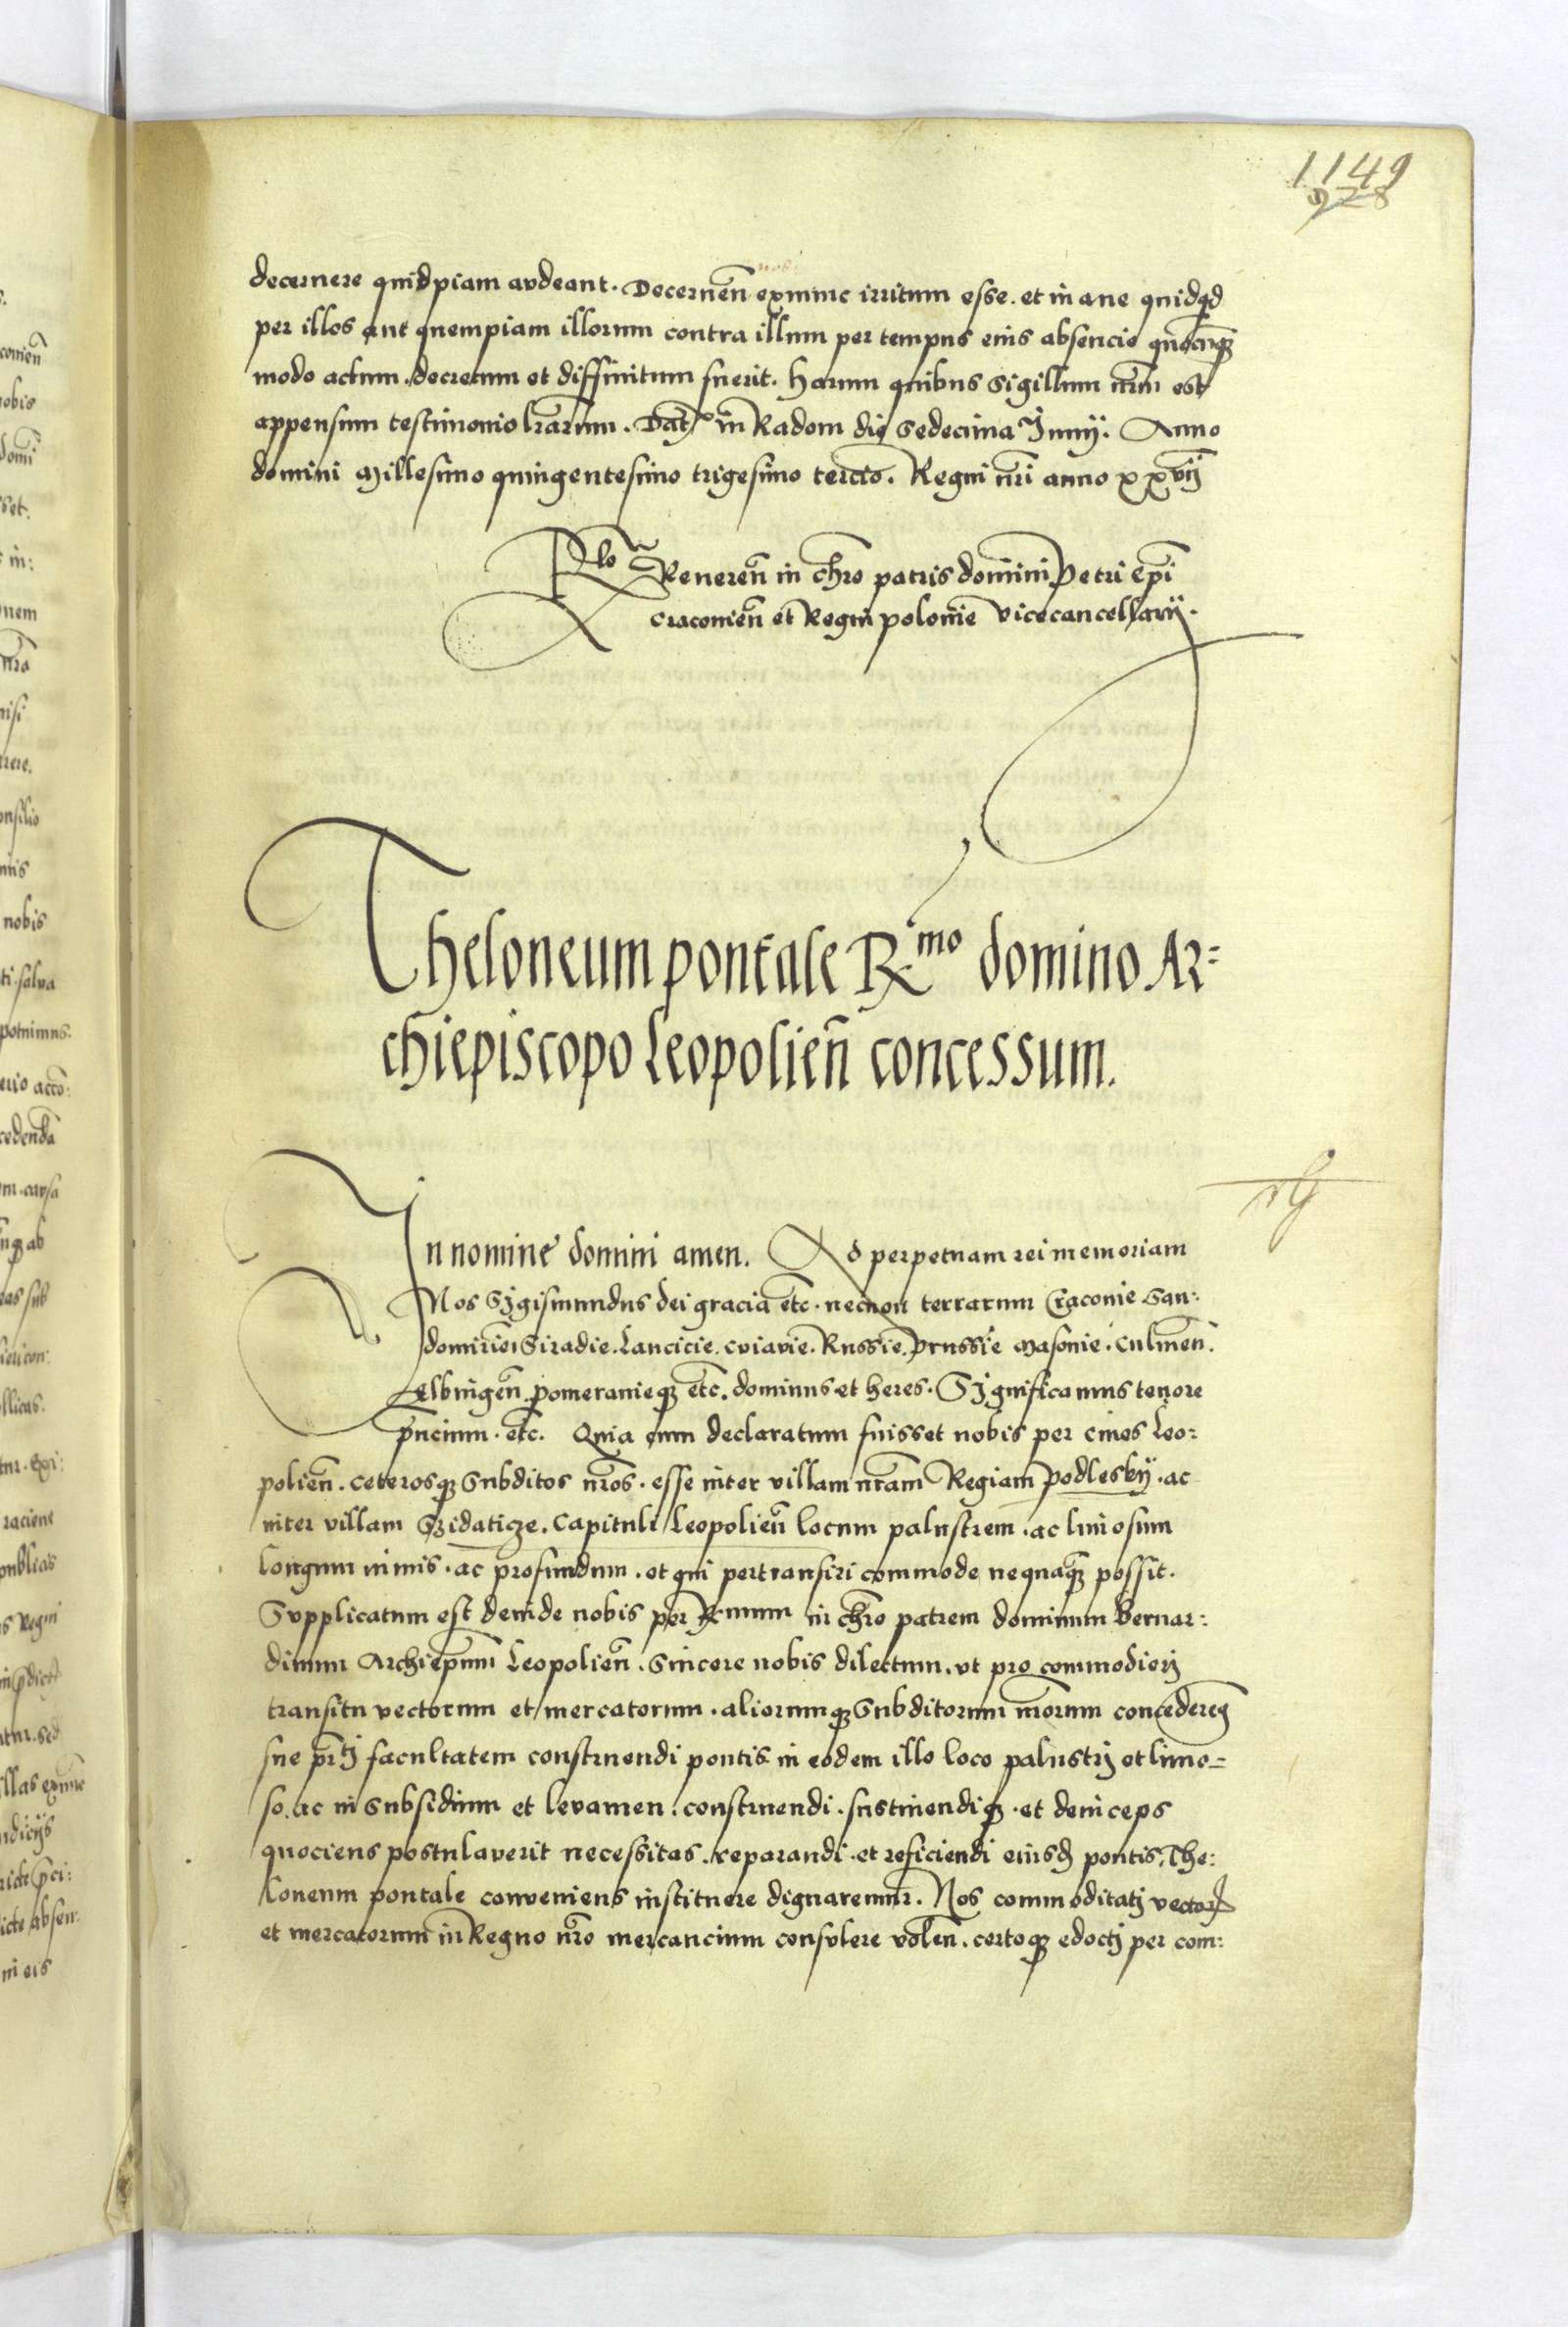 1149
928
decernere quidpiam audeant. Decernen̄ exnunc irritum esse. et inane quidq̄d
per illos aut quempiam illorum contra illum per tempus eius absencie quocunq̄
modo actum. decretum et diffinitum fuerit. Harum quibus sigillum nr̄m est
appensum testimonio lr̄arum. Dat̄ in Radom die sedecima Junij. Anno
domini Millesimo quingentesimo trigesimo tercio. Regni nr̄i anno xxvij
Rlo Reueren̄ in chr̄o patris domini Petri ep̄i
cracouien̄ et Regni polonie vicecancellarij.
Theloneum pontale R.mo domino Ar=
chiepiscopo Leopolien̄ concessum.
In nomine domini amen. Ad perpetuam rei memoriam
Nos Sigismundus dei gracia etc. necnon terrarum Cracouie San:
domirien Siradie. Lancicie. cuiauie. Russie. Prussie Masouie. Culmen̄.
Elbingen̄. pomeranieq̄ etc. dominus et heres. Significamus tenore
pn̄cium. etc. Quia cum declaratum fuisset nobis per ciues Leo:
polien̄. ceterosq̄ subditos nr̄os. esse inter villam nr̄am Regiam Podlesky. ac
inter villam Szidaticze. Capituli Leopolien̄ locum palustrem. ac limosum
longum nimis. ac profundum. et qui pertransiri commode nequaq̄ possit.
Supplicatum est deinde nobis per R.mum in chr̄o patrem dominum Bernar:
dinum Archiep̄um Leopolien̄. sincere nobis dilectum. ut pro commodiori
transitu vectorum et mercatorum. aliorumq̄ subditorum nr̄orum concederem̄
sue pr̄tj facultatem construendi pontis in eodem illo loco palustri et limo=
so. ac in subsidium et leuamen. construendi. sustinendiq̄. et deinceps
quociens postulauerit necessitas. reparandi. et reficiendi eiusd̄ pontis. The:
loneum pontale conueniens instituere dignaremur. Nos commoditati vector̄
et mercatorum in Regno nr̄o mercancium consulere volen̄. certoq̄ edocti per com: